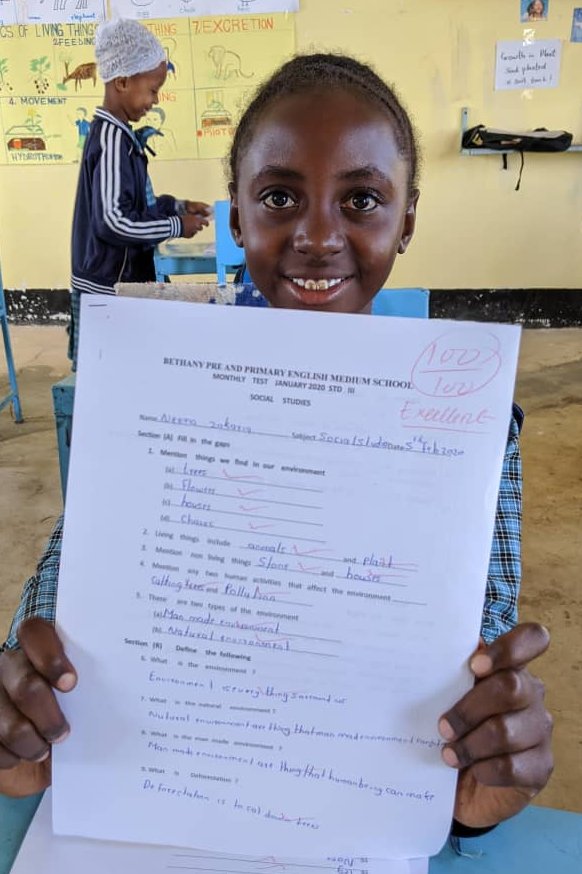 elephant
CS OF LIVING THING
2 FEEDING
THING
7. EXCRETION
4. MOVEMENT
Growth in Plant
Seed planted
BETHANY PRE AND PRIMARY ENGLISH MEDIUM SCHOOL
MONTHLY TEST JANUARY 2020 STD III
SOCIAL STUDIES
100
100
Excellent
Name Neema zakaria Subject Social studies Date 5th Feb 2020
Section (A) Fill in the gaps
1. Mention things we find in our environment
(a) trees
(b) Flowers
(c) houses
(d) Chases
2. Living things include animals and plant
3. Mention non living things Stone and houses
4. Mention any two human activities that affect the environment
Cutting trees and Pollution
5. There are two types of the environment
(a) Man made environment
(b) Natural environment
Section (B) Define the following
6. What is the environment ?
Environment is everything surround us
7. What is the natural environment ?
Natural environment are thing that man mad environment
8. What is the man made environment ?
Man made environment are thing that human being can make
9. What is Deforestation ?
Deforestation is to cut down trees